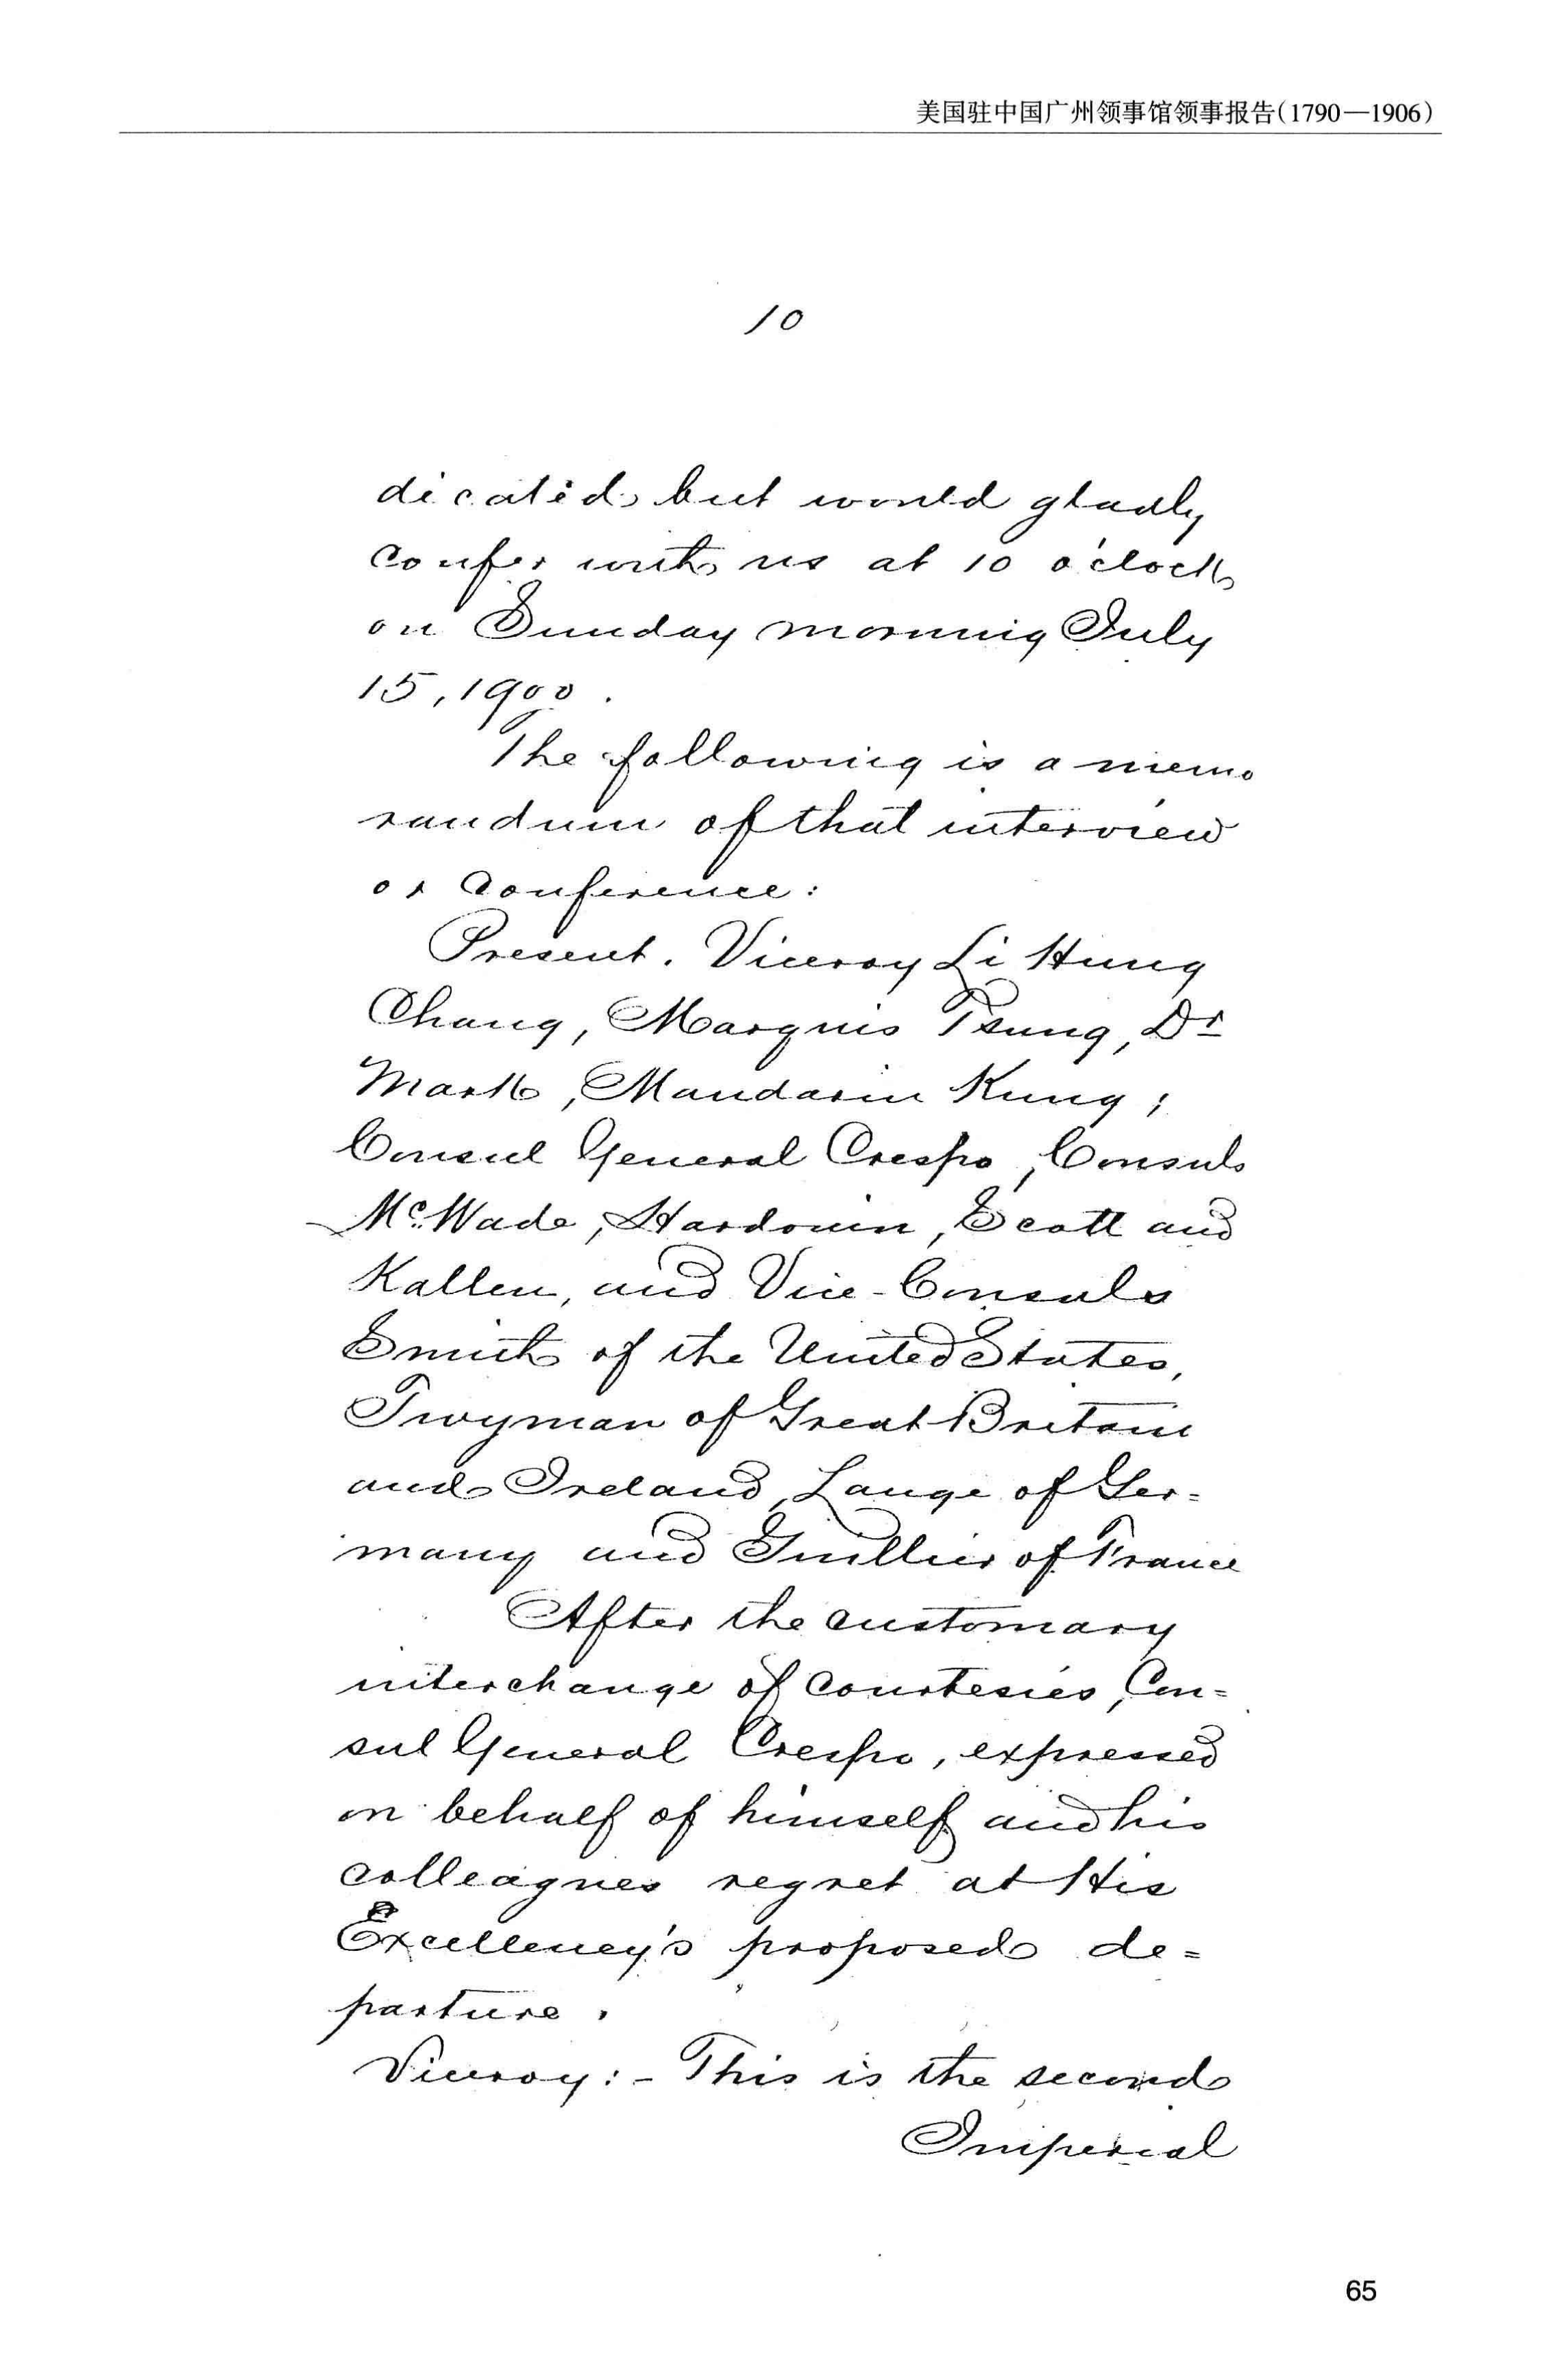 美国驻中国广州领事馆领事报告(1790—1906)
10
dicated but would gladly
confer with us at 10 o'clock
on Sunday morning July
15, 1900.
The following is a memo
randum of that interview
or Conference:
Present. Viceroy Li Hung
Chang, Marquis Tsung, Dr
Mark, Mandarin Kung;
Consul General Crespo, Consuls
McWade, Hardouin, Scott and
Kallen, and Vice-Consuls
Smith of the United States,
Twyman of Great Britain
and Ireland, Lange of Ger=
many and Guillier of France
After the customary
interchange of courtesies, Con=
sul General Crespo, expressed
on behalf of himself and his
colleagues regret at His
Excellency's proposed de=
parture.
Viceroy:- This is the second
Imperial
65